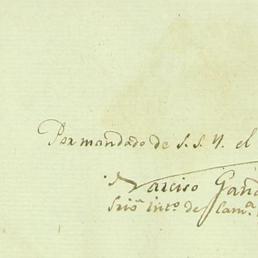 Por mandado de S. S. Y. el
Narciso Garc
Srio. Into. de Cama.